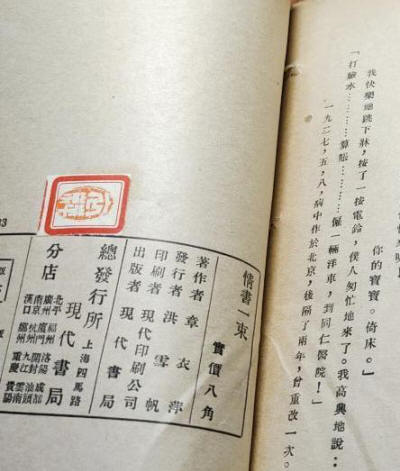 你的寶寶。倚床。」
我快樂地跳下牀,按了一按電鈴,僕人匆忙地來了。我高興地說:
「打臉水…………算賬…………僱一輛洋車,到同仁醫院!」
一九二七,五,八,病中作於北京,後隔了兩年,曾重改一次。
33
情書一束
實價八角
著作者 章衣萍
發行者 洪雪帆
印刷者 現代印刷公司
出版者 現代書局
總發行所 上海四馬路
現代書局
分店
北平 福州 洛陽 成都
廣州 廈門 開封 汕頭
南京 杭州 九江 雲南
漢口 重慶 貴陽